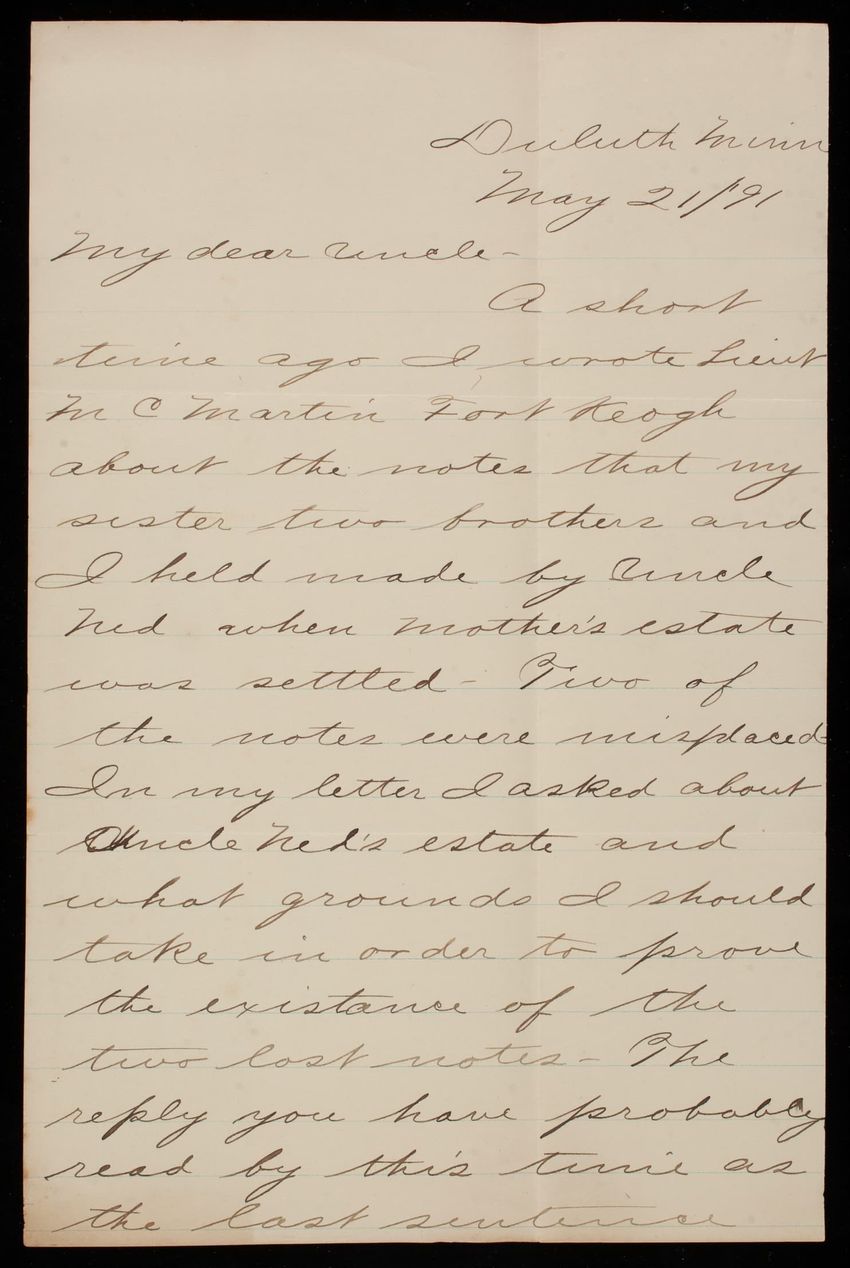 Duluth Minn
May 21/91
My dear Uncle-
A short
time ago I wrote Lieut
M C Martin Fort Keogh
about the notes that my
sister two brothers and
I held made by Uncle
Ned when Mother's estate
was settled - Two of
the notes were misplaced-
In my letter I asked about
Uncle Ned's estate and
what grounds I should
take in order to prove
the existance of the
two lost notes - The
reply you have probably
read by this time as
the last sentence